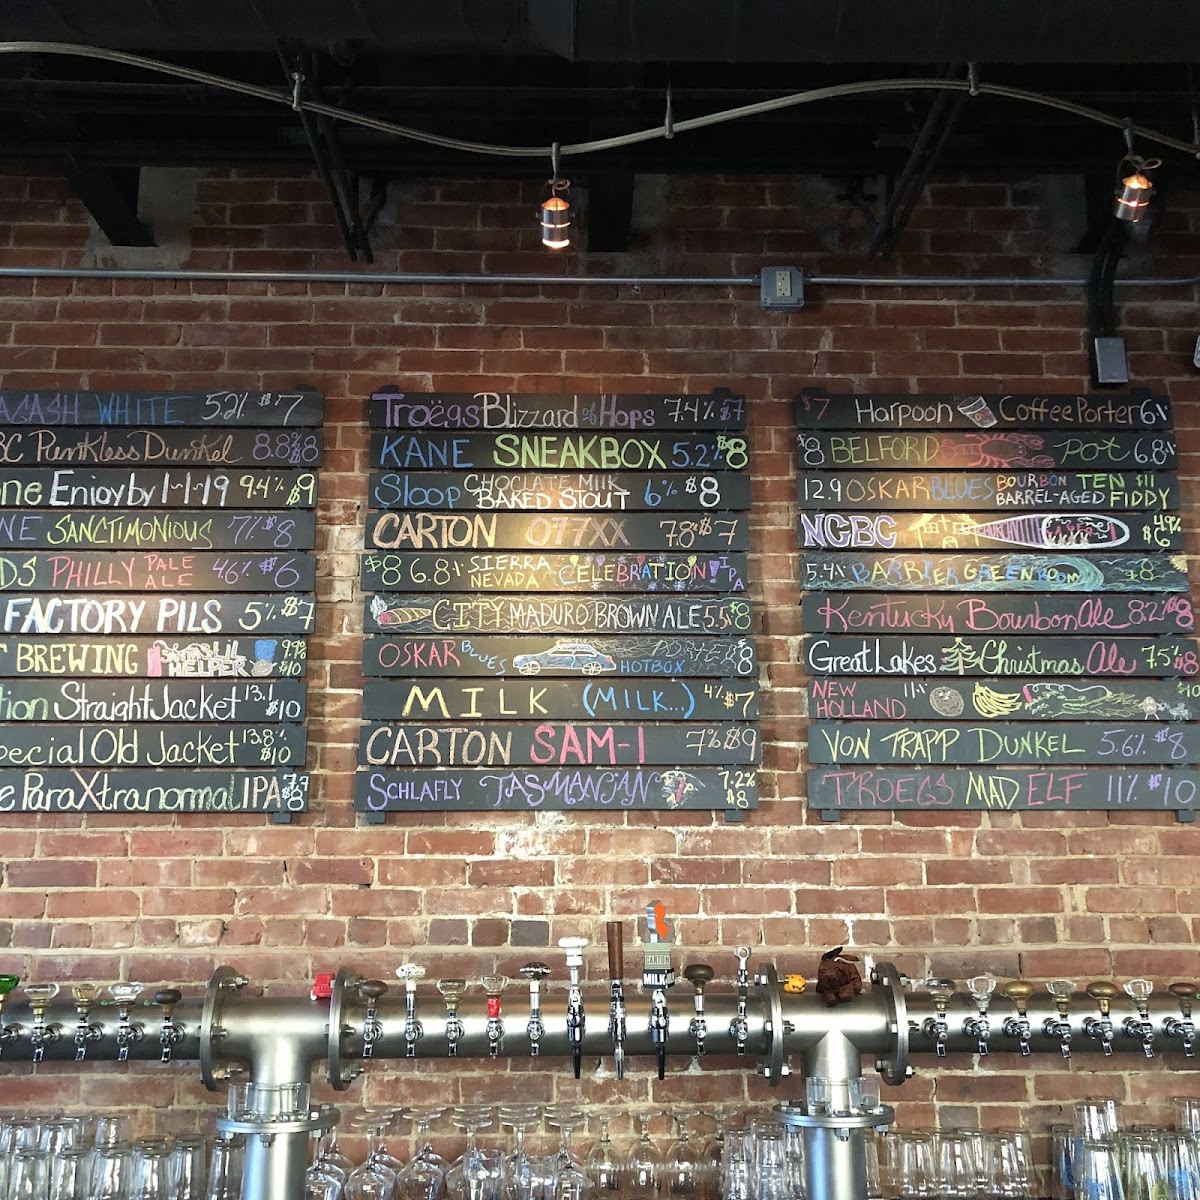 AGASH WHITE 5.2% $7
BC Punkless Dunkel 8.8% $8
one Enjoy by 1-1-19 9.4% $9
NE SANCTIMONIOUS 7% $8
DS PHILLY PALE ALE 4.6% $6
FACTORY PILS 5% $7
BREWING SANTAS LIL HELPER 9.9% $10
tion Straight Jacket 13.1 $10
pecial Old Jacket 13.8% $10
e ParaXtranormal IPA 7.7 $8
Troëgs Blizzard of Hops 7.4% $7
KANE SNEAKBOX 5.2% $8
Sloop CHOCLATE MILK BAKED STOUT 6% $8
CARTON 077XX 7.8% $7
$8 6.8% SIERRA NEVADA CELEBRATION! IPA
CITY MADURO BROWN ALE 5.5% $8
OSKAR BLUES HOTBOX PORTER $8
MILK (MILK...) 4% $7
CARTON SAM-I 7% $9
SCHLAFLY TASMANIAN 7.2% $8
$7 Harpoon Coffee Porter 6%
$8 BELFORD POT 6.8%
12.9 OSKAR BLUES BOURBON BARREL-AGED TEN FIDDY $11
NGBC 4.9% $6
5.4% BARRIER GREENROOM $8
Kentucky Bourbon Ale 8.2% $8
Great Lakes Christmas Ale 7.5% $8
NEW HOLLAND 11% $10
VON TRAPP DUNKEL 5.6% $8
TROEGS MAD ELF 11% $10
CARTON
MILK